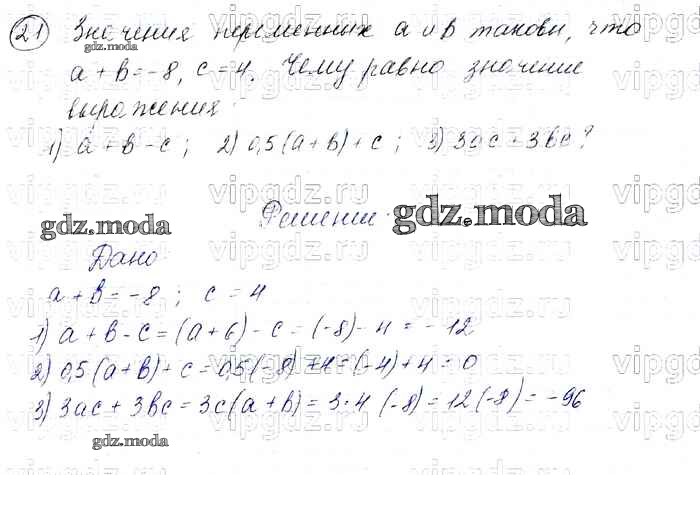 21 Значения переменных a и b таковы, что
gdz.moda
a + b = -8, c = 4. Чему равно значение
выражения:
1) a + b - c; 2) 0,5(a + b) + c; 3) 3ac + 3bc?
gdz.moda Решение. gdz.moda
Дано
a + b = -8; c = 4
1) a + b - c = (a + b) - c = (-8) - 4 = -12
2) 0,5(a + b) + c = 0,5(-8) + 4 = (-4) + 4 = 0
3) 3ac + 3bc = 3c(a + b) = 3·4(-8) = 12(-8) = -96
gdz.moda
vipgdz.ru